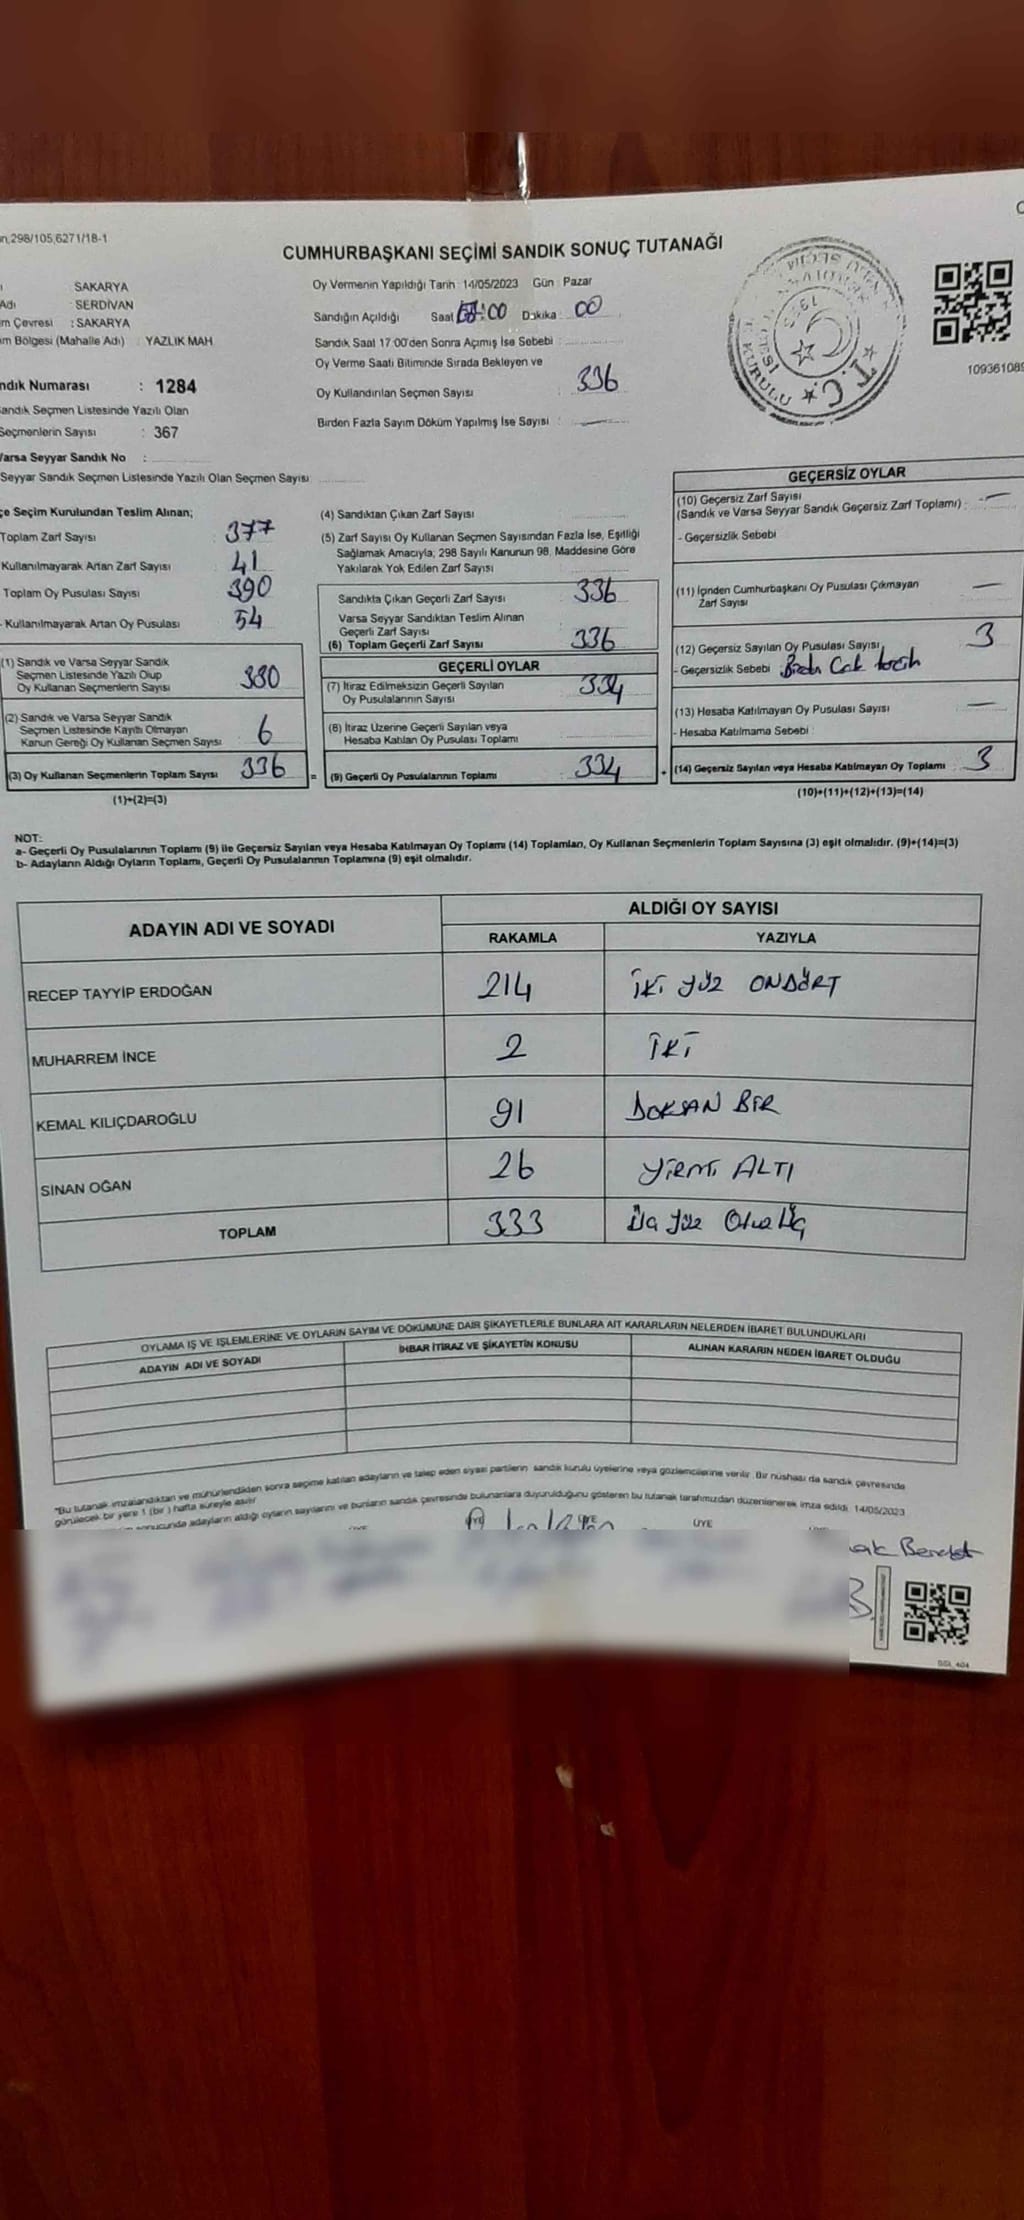 n,298/105,6271/18-1
CUMHURBAŞKANI SEÇİMİ SANDIK SONUÇ TUTANAĞI
SAKARYA
Adı : SERDİVAN
m Çevresi : SAKARYA
m Bölgesi (Mahalle Adı) : YAZLIK MAH
ndık Numarası : 1284
andık Seçmen Listesinde Yazılı Olan
Seçmenlerin Sayısı : 367
Varsa Seyyar Sandık No :
Seyyar Sandık Seçmen Listesinde Yazılı Olan Seçmen Sayısı
Oy Vermenin Yapıldığı Tarih : 14/05/2023 Gün : Pazar
Sandığın Açıldığı Saat :00 Dakika : 00
Sandık Saat 17:00'den Sonra Açımış İse Sebebi :
Oy Verme Saati Bitiminde Sırada Bekleyen ve
Oy Kullandırılan Seçmen Sayısı : 336
Birden Fazla Sayım Döküm Yapılmış İse Sayısı : —
T.C.
KURULU
109361089
çe Seçim Kurulundan Teslim Alınan;
Toplam Zarf Sayısı : 377
Kullanılmayarak Artan Zarf Sayısı : 41
Toplam Oy Pusulası Sayısı : 390
- Kullanılmayarak Artan Oy Pusulası : 54
(1) Sandık ve Varsa Seyyar Sandık
Seçmen Listesinde Yazılı Olup
Oy Kullanan Seçmenlerin Sayısı 330
(2) Sandık ve Varsa Seyyar Sandık
Seçmen Listesinde Kayıtlı Olmayan
Kanun Gereği Oy Kullanan Seçmen Sayısı 6
(3) Oy Kullanan Seçmenlerin Toplam Sayısı 336
(1)+(2)=(3)
(4) Sandıktan Çıkan Zarf Sayısı
(5) Zarf Sayısı Oy Kullanan Seçmen Sayısından Fazla İse, Eşitliği
Sağlamak Amacıyla; 298 Sayılı Kanunun 98. Maddesine Göre
Yakılarak Yok Edilen Zarf Sayısı
Sandıkta Çıkan Geçerli Zarf Sayısı 336
Varsa Seyyar Sandıktan Teslim Alınan
Geçerli Zarf Sayısı
(6) Toplam Geçerli Zarf Sayısı 336
GEÇERLİ OYLAR
(7) İtiraz Edilmeksizin Geçerli Sayılan
Oy Pusulalarının Sayısı 334
(8) İtiraz Üzerine Geçerli Sayılan veya
Hesaba Katılan Oy Pusulası Toplamı
= (9) Geçerli Oy Pusulalarının Toplamı 334
GEÇERSİZ OYLAR
(10) Geçersiz Zarf Sayısı
(Sandık ve Varsa Seyyar Sandık Geçersiz Zarf Toplamı) : —
- Geçersizlik Sebebi
(11) İçinden Cumhurbaşkanı Oy Pusulası Çıkmayan
Zarf Sayısı —
(12) Geçersiz Sayılan Oy Pusulası Sayısı 3
- Geçersizlik Sebebi Birden Çok tercih
(13) Hesaba Katılmayan Oy Pusulası Sayısı —
- Hesaba Katılmama Sebebi :
+ (14) Geçersiz Sayılan veya Hesaba Katılmayan Oy Toplamı 3
(10)+(11)+(12)+(13)=(14)
NOT:
a- Geçerli Oy Pusulalarının Toplamı (9) ile Geçersiz Sayılan veya Hesaba Katılmayan Oy Toplamı (14) Toplamları, Oy Kullanan Seçmenlerin Toplam Sayısına (3) eşit olmalıdır. (9)+(14)=(3)
b- Adayların Aldığı Oyların Toplamı, Geçerli Oy Pusulalarının Toplamına (9) eşit olmalıdır.
ADAYIN ADI VE SOYADI ALDIĞI OY SAYISI
RAKAMLA YAZIYLA
RECEP TAYYİP ERDOĞAN 214 İKİ YÜZ ONDÖRT
MUHARREM İNCE 2 İKİ
KEMAL KILIÇDAROĞLU 91 DOKSAN BİR
SİNAN OĞAN 26 YİRMİ ALTI
TOPLAM 333 Üç Yüz Otuz Üç
OYLAMA İŞ VE İŞLEMLERİNE VE OYLARIN SAYIM VE DÖKÜMÜNE DAİR ŞİKAYETLERLE BUNLARA AİT KARARLARIN NELERDEN İBARET BULUNDUKLARI
ADAYIN ADI VE SOYADI İHBAR İTİRAZ VE ŞİKAYETİN KONUSU ALINAN KARARIN NEDEN İBARET OLDUĞU
"Bu tutanak imzalandıktan ve mühürlendikten sonra seçime katılan adayların ve talep eden siyasi partilerin sandık kurulu üyelerine veya gözlemcilerine verilir. Bir nüshası da sandık çevresinde
görülecek bir yere 1 (bir) hafta süreyle asılır
sonucunda adayların aldığı oyların sayılarını ve bunların sandık çevresinde bulunanlara duyurulduğunu gösteren bu tutanak tarafımızdan düzenlenerek imza edildi. 14/05/2023
ÜYE ÜYE